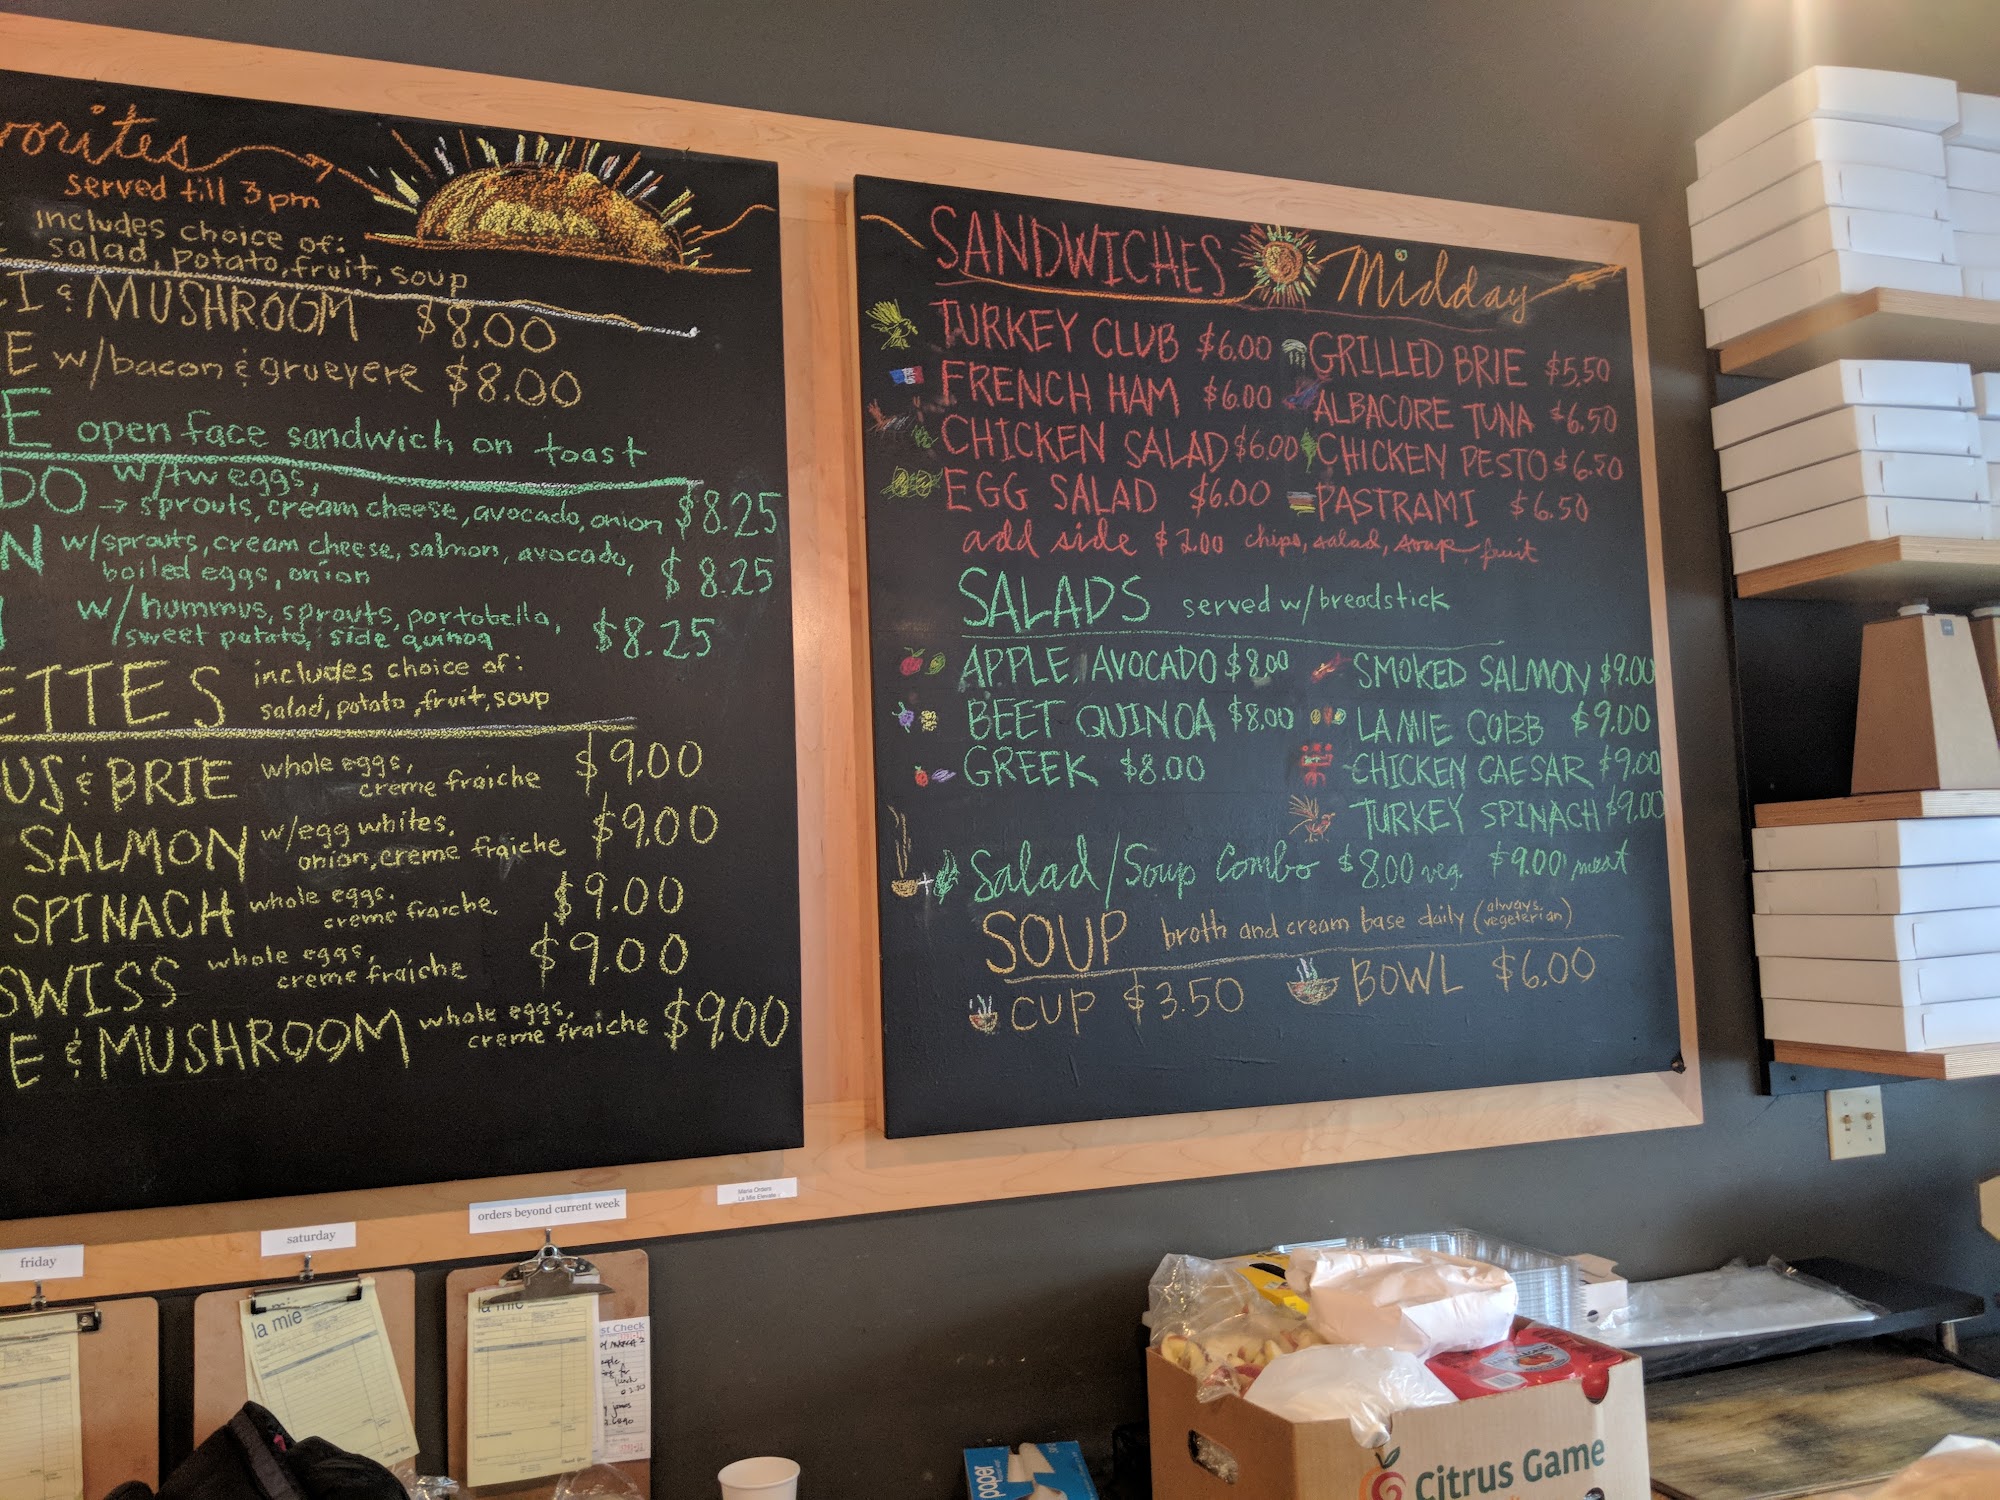 served till 3pm
includes choice of:
salad, potato, fruit, soup
& MUSHROOM $8.00
w/bacon & grueyere $8.00
open face sandwich on toast
w/tw eggs,
→ sprouts, cream cheese, avocado, onion $8.25
w/sprouts, cream cheese, salmon, avocado,
boiled eggs, onion $8.25
w/hummus, sprouts, portobello,
sweet potato, side quinoa $8.25
ETTES includes choice of:
salad, potato, fruit, soup
US & BRIE whole eggs,
creme fraiche $9.00
SALMON w/egg whites,
onion, creme fraiche $9.00
SPINACH whole eggs,
creme fraiche $9.00
SWISS whole eggs,
creme fraiche $9.00
E & MUSHROOM whole eggs,
creme fraiche $9.00
SANDWICHES Midday
TURKEY CLUB $6.00 GRILLED BRIE $5.50
FRENCH HAM $6.00 ALBACORE TUNA $6.50
CHICKEN SALAD $6.00 CHICKEN PESTO $6.50
EGG SALAD $6.00 PASTRAMI $6.50
add side $2.00 chips, salad, soup, fruit
SALADS served w/breadstick
APPLE, AVOCADO $8.00 SMOKED SALMON $9.00
BEET QUINOA $8.00 LA MIE COBB $9.00
GREEK $8.00 CHICKEN CAESAR $9.00
TURKEY SPINACH $9.00
Salad/Soup Combo $8.00 veg. $9.00 meat
SOUP broth and cream base daily (always vegeterian)
CUP $3.50 BOWL $6.00
friday
saturday
orders beyond current week
la mie
la mie
st Check
paper
Citrus Game